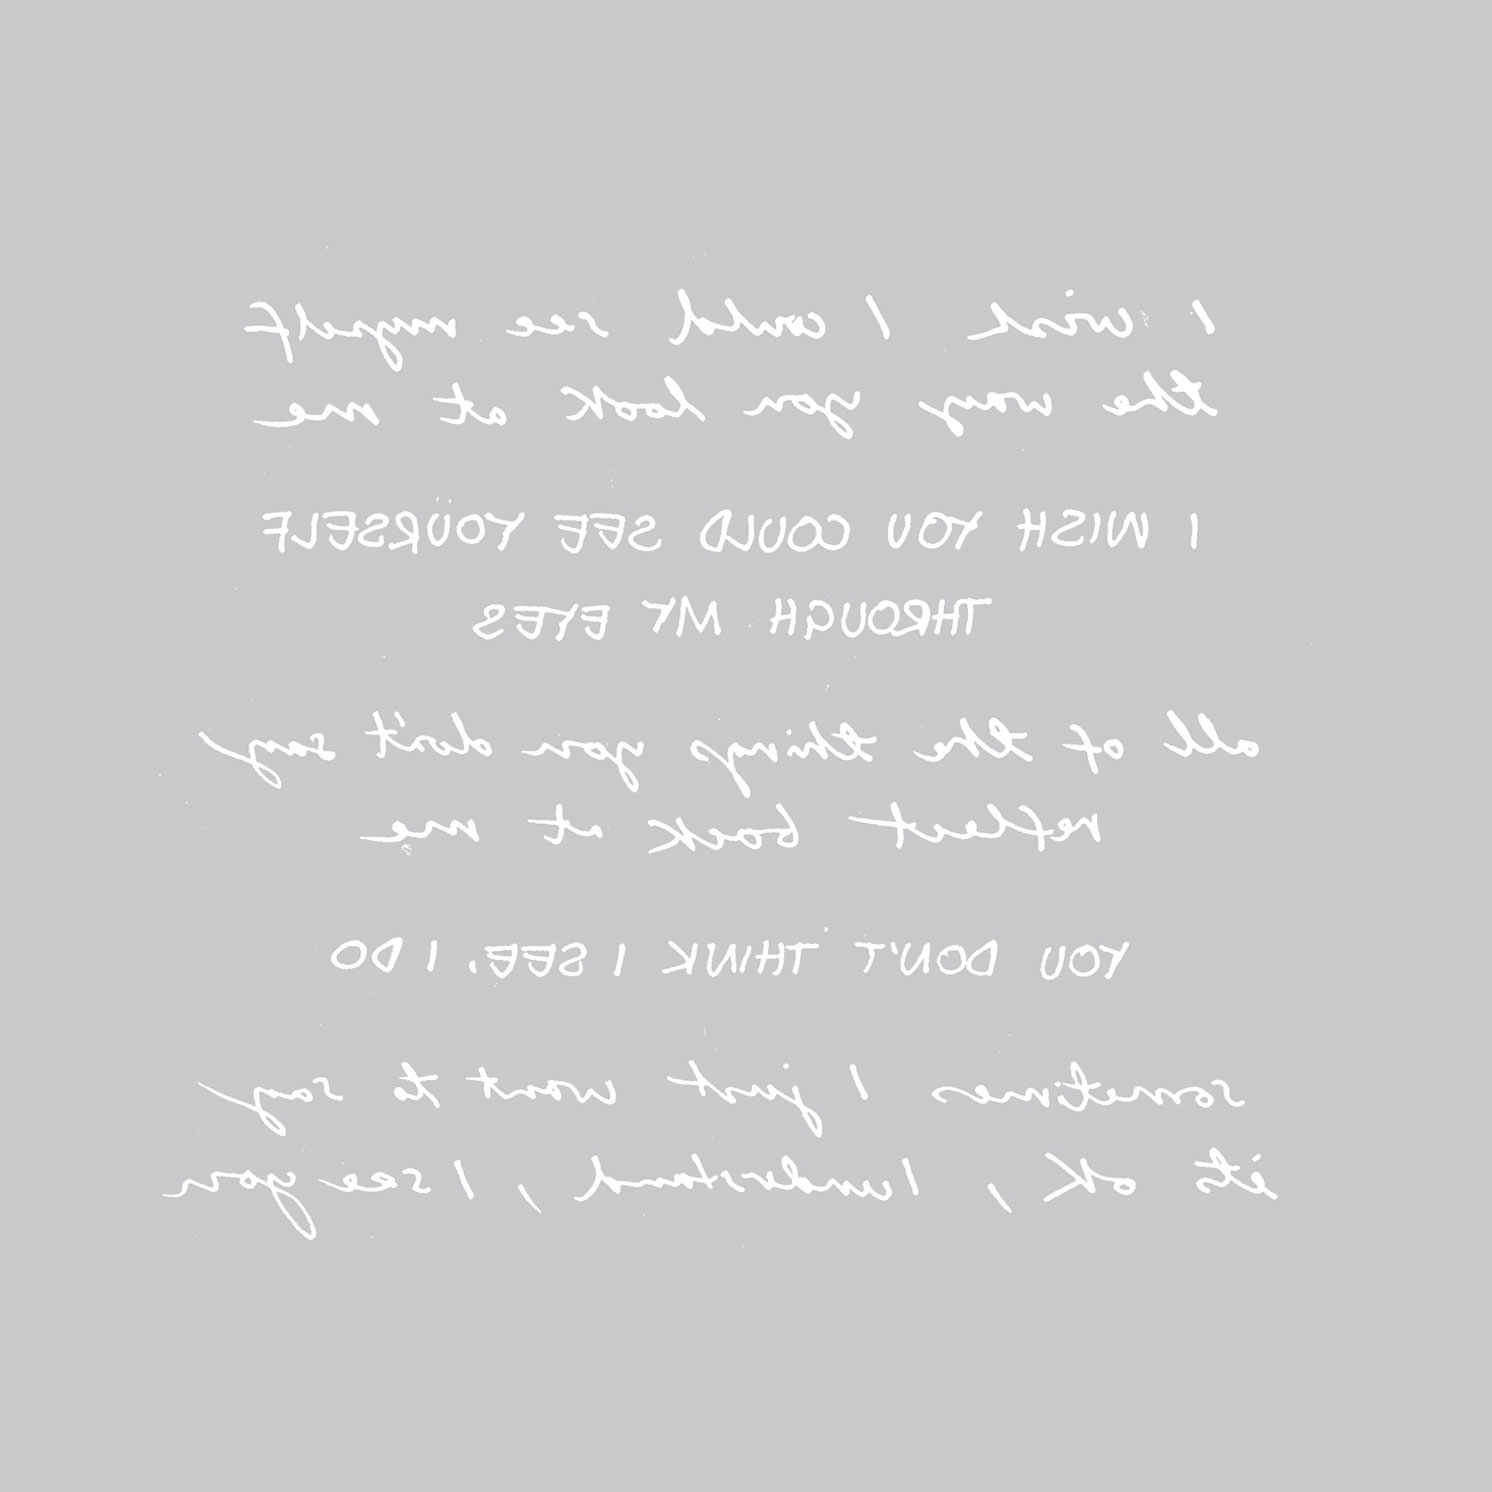 I wish I could see myself
the way you look at me
I WISH YOU COULD SEE YOURSELF
THROUGH MY EYES
all of the things you don't say
reflect back at me
YOU DON'T THINK I SEE. I DO
sometimes I just want to say
it's ok, I understand, I see you